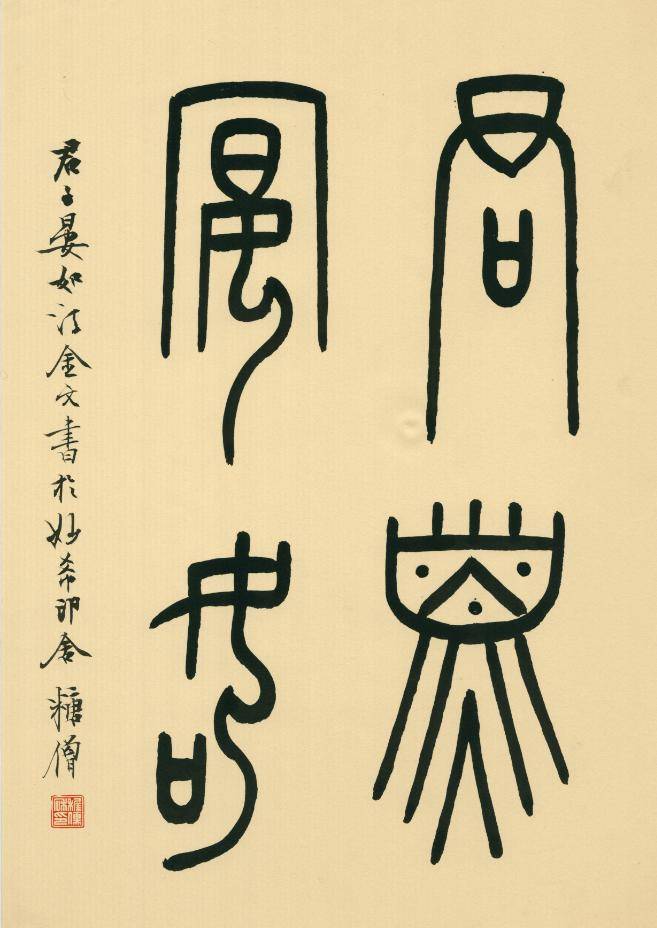 君子
晏如
君子晏如 法金文書於妙希印舍 糖僧